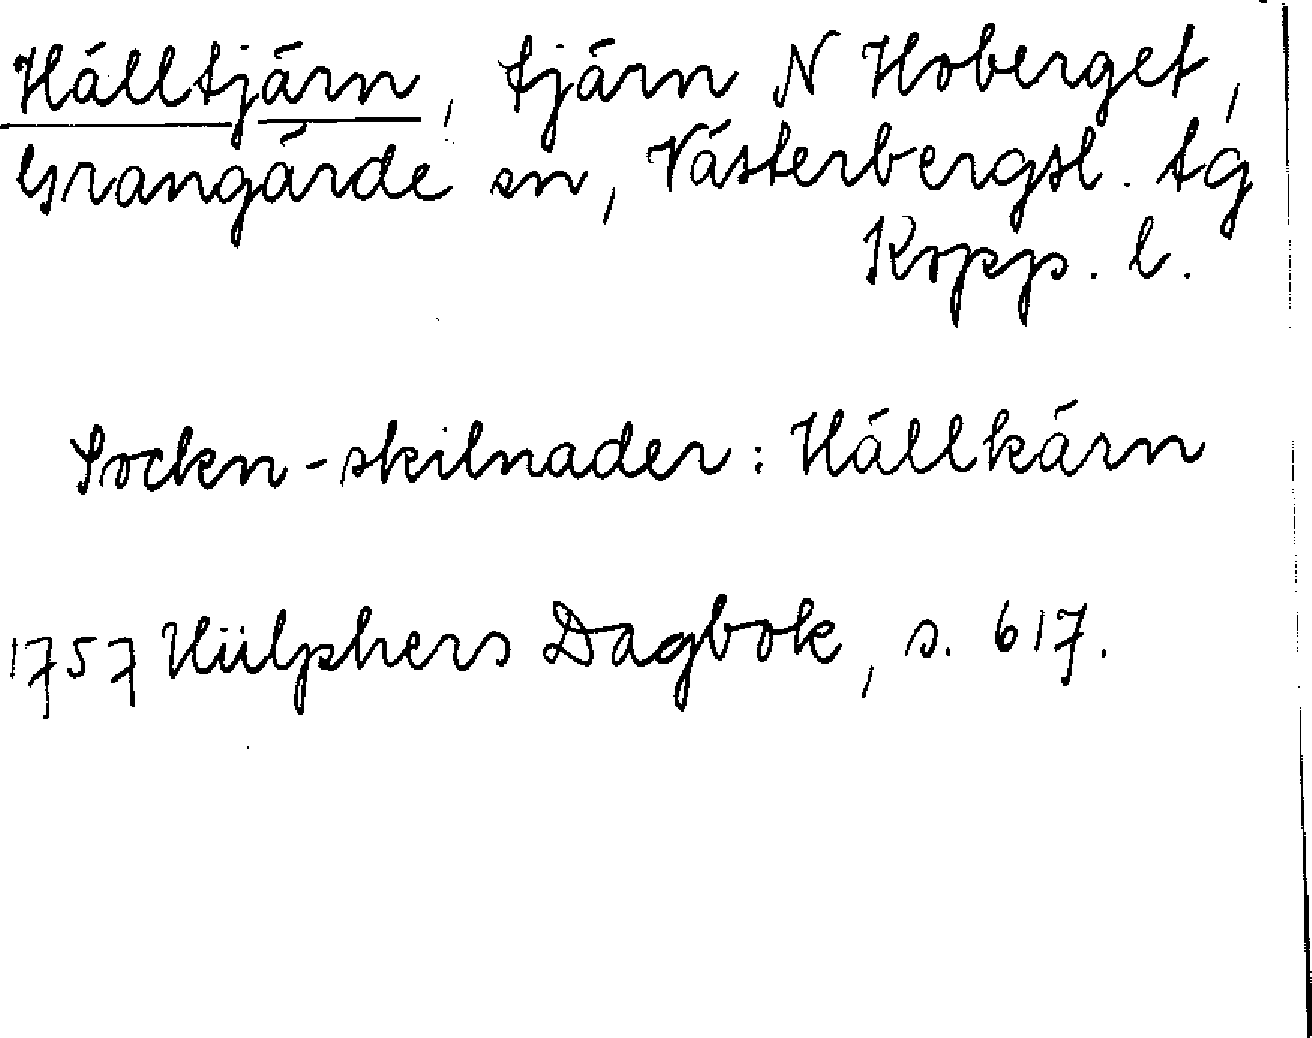 Hälltjärn, tjärn N Hoberget,
Grangärde sn, Västerbergsl. tg
Kopp. l.
Sockn-skilnader: Hällkärn
1757 Hülphers Dagbok, s. 617.